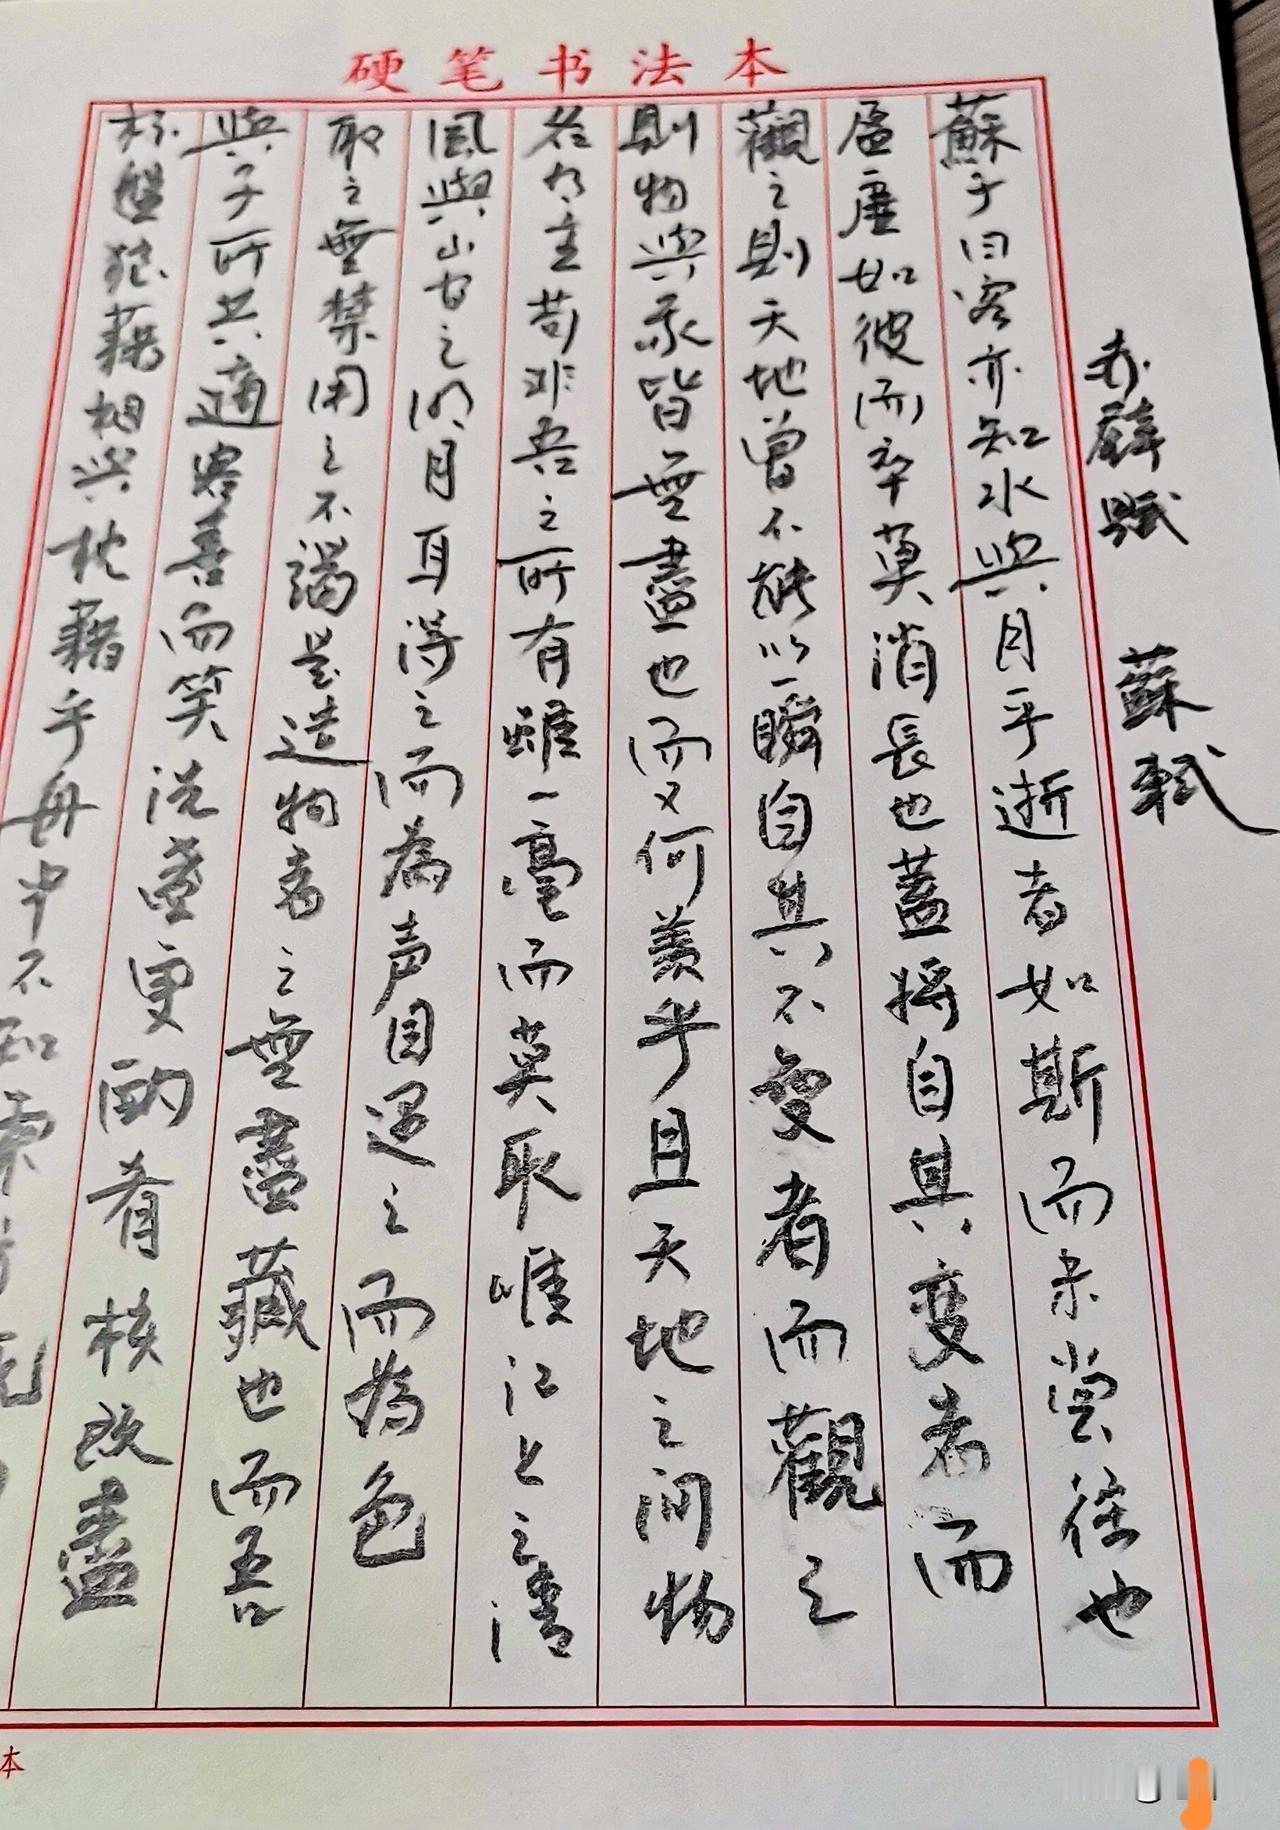 硬笔书法本
赤壁賦 蘇軾
蘇子曰客亦知水與月乎逝者如斯而未嘗往也
盈虛如彼而卒莫消長也蓋將自其变者而
觀之則天地曾不能以一瞬自其不變者而觀之
則物與我皆無盡也而又何羨乎且天地之间物
各有主苟非吾之所有雖一毫而莫取唯江上之清
風與山间之明月耳得之而為声目遇之而為色
取之無禁用之不竭是造物者之無盡藏也而吾
與子所共適客喜而笑洗盞更酌肴核既盡
杯盤狼藉相與枕藉乎舟中不知東方既
本